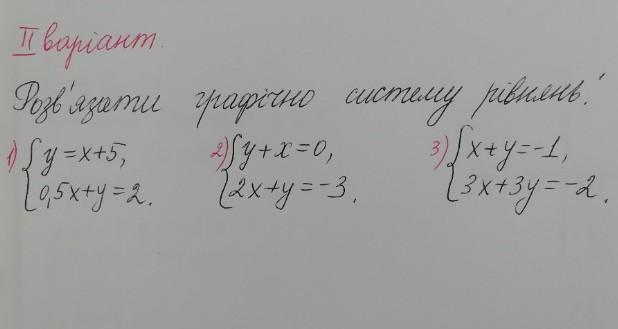 II варіант.
Розв'язати графічно систему рівнянь:
1) { y = x+5, 2) { y+x=0, 3) { x+y=-1,
0,5x+y=2. 2x+y=-3. 3x+3y=-2.